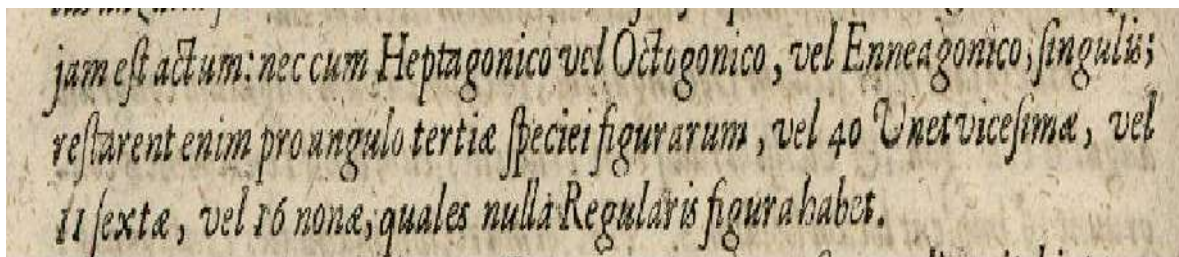 jam est actum: nec cum Heptagonico vel Octogonico, vel Enneagonico, singulis;
restarent enim pro angulo tertiæ speciei figurarum, vel 40 Unetvicesimæ, vel
11 sextæ, vel 16 nonæ, quales nulla Regularis figura habet.